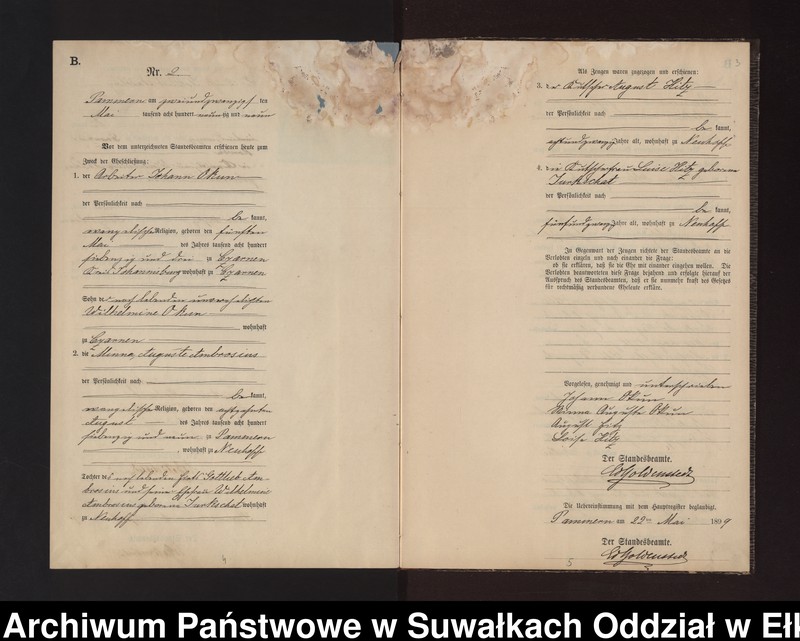 B.
Nr. 2
Pammern am zweiundzwanzigsten
Mai tausend acht hundert neunzig und neun
Vor dem unterzeichneten Standesbeamten erschienen heute zum
Zweck der Eheschließung:
1. der Arbeiter Johann Okun
der Persönlichkeit nach
be kannt,
evangelischer Religion, geboren den fünften
Mai des Jahres tausend acht hundert
siebenzig und drei zu Czarnen
Kreis Johannisburg wohnhaft zu Czarnen
Sohn der noch lebenden unverehelichten
Wilhelmine Okun
, wohnhaft
zu Czarnen
2. die Minna, Auguste Ambrosius
der Persönlichkeit nach
be kannt,
evangelischer Religion, geboren den achtzehnten
August des Jahres tausend acht hundert
siebenzig und neun zu Pammern
, wohnhaft zu Neuhoff
Tochter des noch lebenden Gottlieb Am-
brosius und seine Ehefrau Wilhelmine
Ambrosius geborene Turkschat wohnhaft
zu Neuhoff
Als Zeugen waren zugezogen und erschienen:
3. der Kutscher August Hitz
der Persönlichkeit nach
be kannt,
achtundzwanzig Jahre alt, wohnhaft zu Neuhoff
4. die Kutscherfrau Luise Hitz geborene
Turkschat
der Persönlichkeit nach
be kannt,
fünfundzwanzig Jahre alt, wohnhaft zu Neuhoff
In Gegenwart der Zeugen richtete der Standesbeamte an die
Verlobten einzeln und nach einander die Frage:
ob sie erklären, daß sie die Ehe mit einander eingehen wollen. Die
Verlobten beantworteten diese Frage bejahend und erfolgte hierauf der
Ausspruch des Standesbeamten, daß er sie nunmehr kraft des Gesetzes
für rechtmäßig verbundene Eheleute erkläre.
Vorgelesen, genehmigt und unterschrieben
Johann Okun
Minna Auguste Okun
August Hitz
Loise Hitz
Der Standesbeamte.
Goldenstedt
Die Uebereinstimmung mit dem Hauptregister beglaubigt.
Pammern am 22ten Mai 1899
Der Standesbeamte.
Goldenstedt
Archiwum Państwowe w Suwałkach Oddział w Ełk